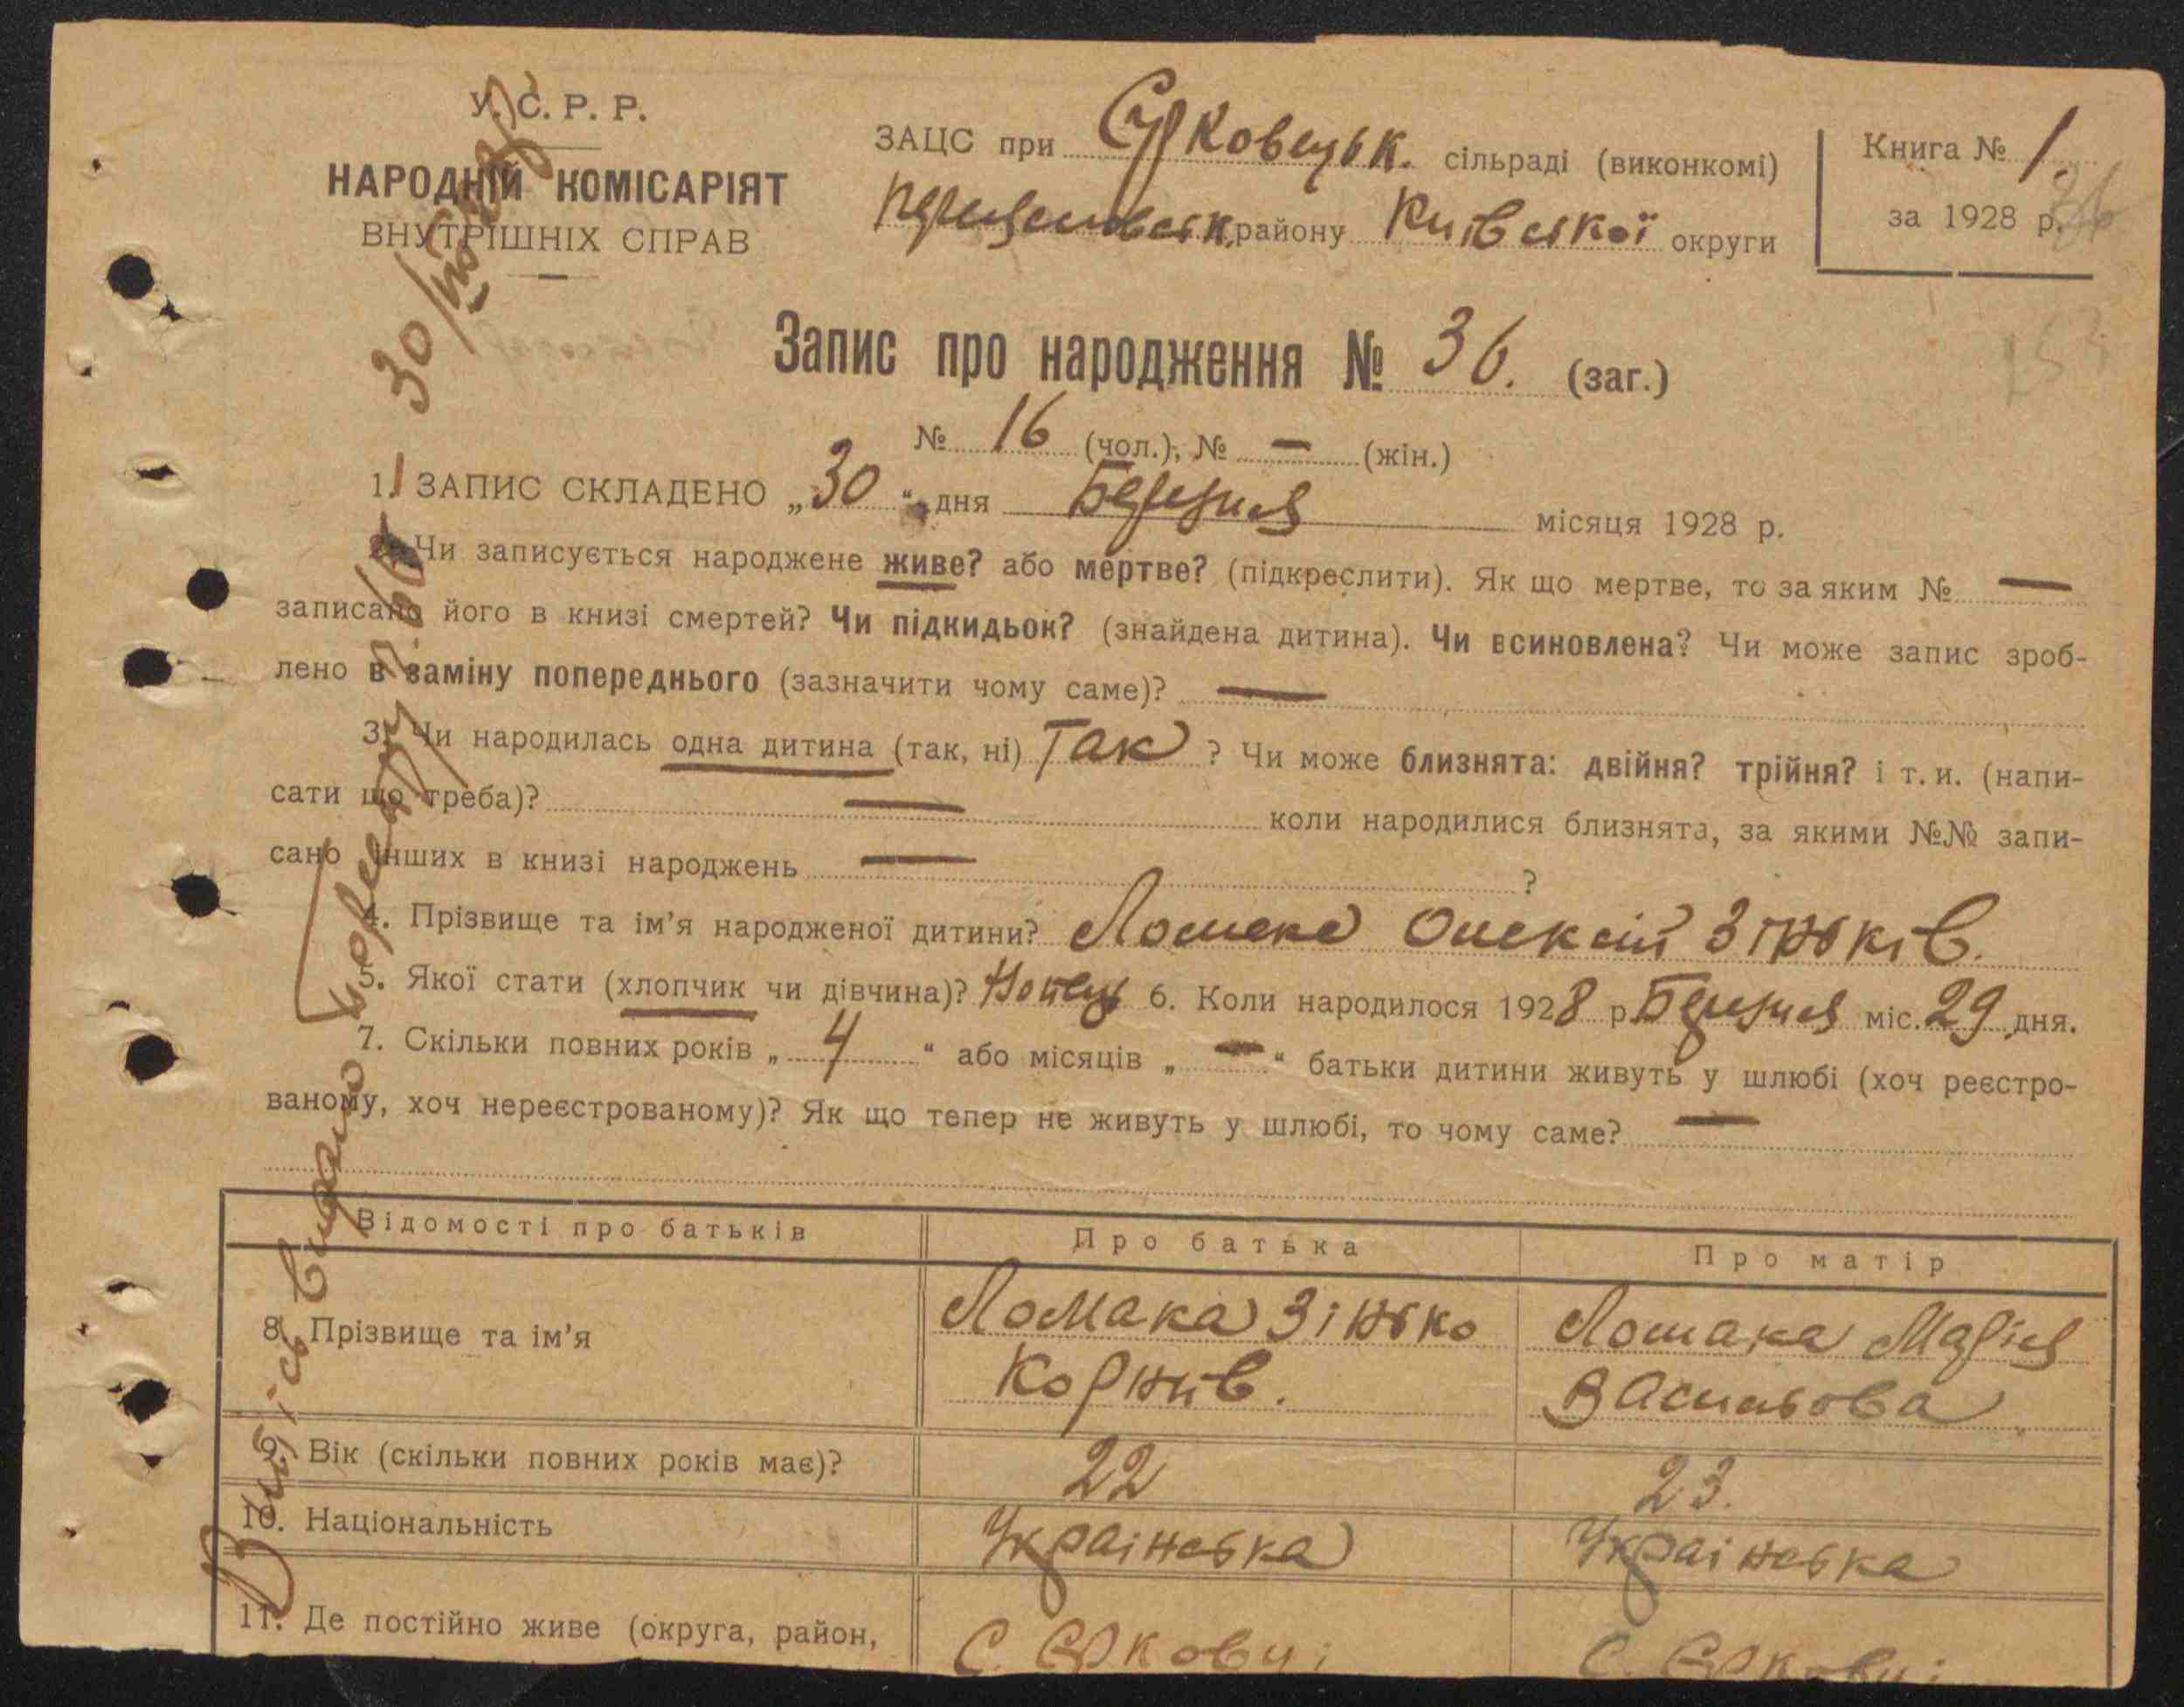 У. С. Р. Р.
НАРОДНІЙ КОМІСАРІЯТ
ВНУТРІШНІХ СПРАВ
ЗАЦС при сільраді (виконкомі)
району Київської округи
Книга № 1.
за 1928 р.
Запис про народження № 36. (заг.)
№ 16 (чол.), № — (жін.)
1. ЗАПИС СКЛАДЕНО „30“ дня Березня місяця 1928 р.
2. Чи записується народжене живе? або мертве? (підкреслити). Як що мертве, то за яким № —
записано його в книзі смертей? Чи підкидьок? (знайдена дитина). Чи всиновлена? Чи може запис зроб-
лено в заміну попереднього (зазначити чому саме)? —
3. Чи народилась одна дитина (так, ні) Так ? Чи може близнята: двійня? трійня? і т. и. (напи-
сати що треба)? — коли народилися близнята, за якими №№ запи-
сано інших в книзі народжень — ?
4. Прізвище та ім’я народженої дитини? Ломака Олексій Зіньків.
5. Якої стати (хлопчик чи дівчина)? 6. Коли народилося 1928 р. Березня міс. 29 дня.
7. Скільки повних років „ 4 “ або місяців „ — “ батьки дитини живуть у шлюбі (хоч реєстро-
ваному, хоч нереєстрованому)? Як що тепер не живуть у шлюбі, то чому саме? —
Відомості про батьків Про батька Про матір
8. Прізвище та ім’я Ломака Зінько Ломака Марія
Корніїв. Васильова
9. Вік (скільки повних років має)? 22 23.
10. Національність Українська Українська
11. Де постійно живе (округа, район, С. С.